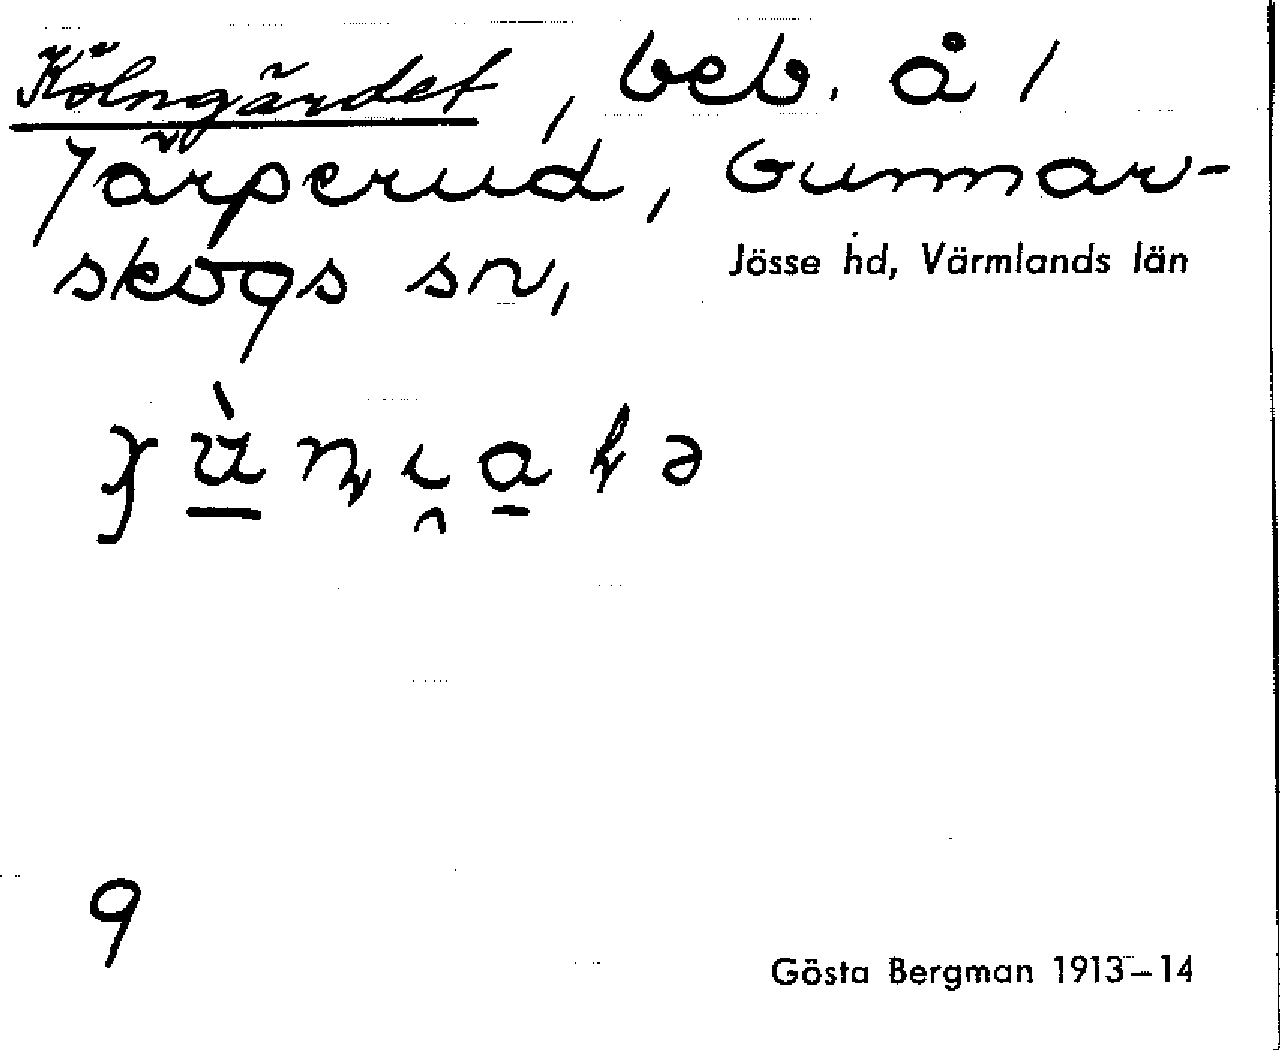 Kölngärdet, beb. å /
Järperud, Gunnar-
skogs sn,
Jösse hd, Värmlands län
9
Gösta Bergman 1913–14